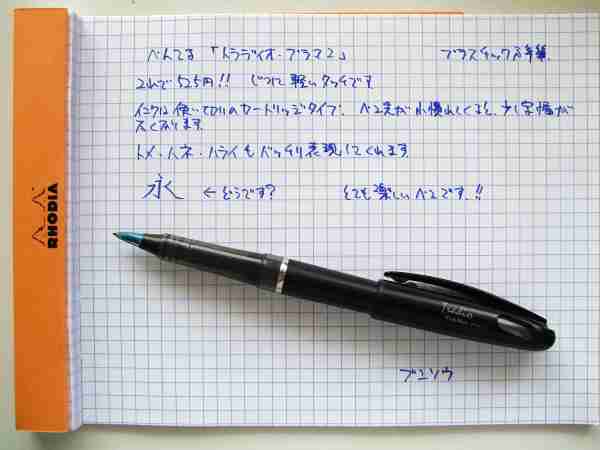 ぺんてる「トラディオ・プラマン」 プラスチック万年筆
これで525円!! じつに軽いタッチです
インクは使い切りのカートリッジタイプ。ペン先が小慣れてくると、少し字幅が
太くなります
トメ・ハネ・ハライもバッチリ表現してくれます
永 ←どうです? とても楽しいペンです!!
RHODIA
Tradio
ブンゾウ